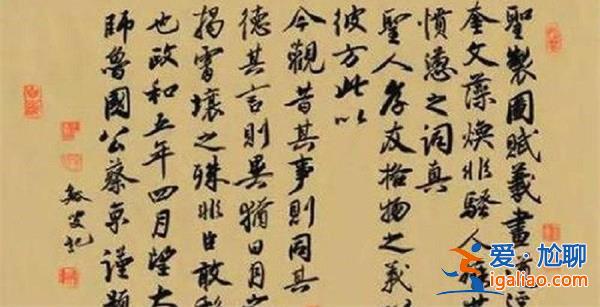 聖製圖賦羲畫混
奎文藻煥非騷人
憤懣之詞真
聖人孝友格物之義
彼方此以
今觀昔其事則同其
德其言則異猶日月
揭霄壤之殊非臣敢
也政和五年四月望太
師魯國公蔡京謹題
記
爱尬聊
aigaliao.com